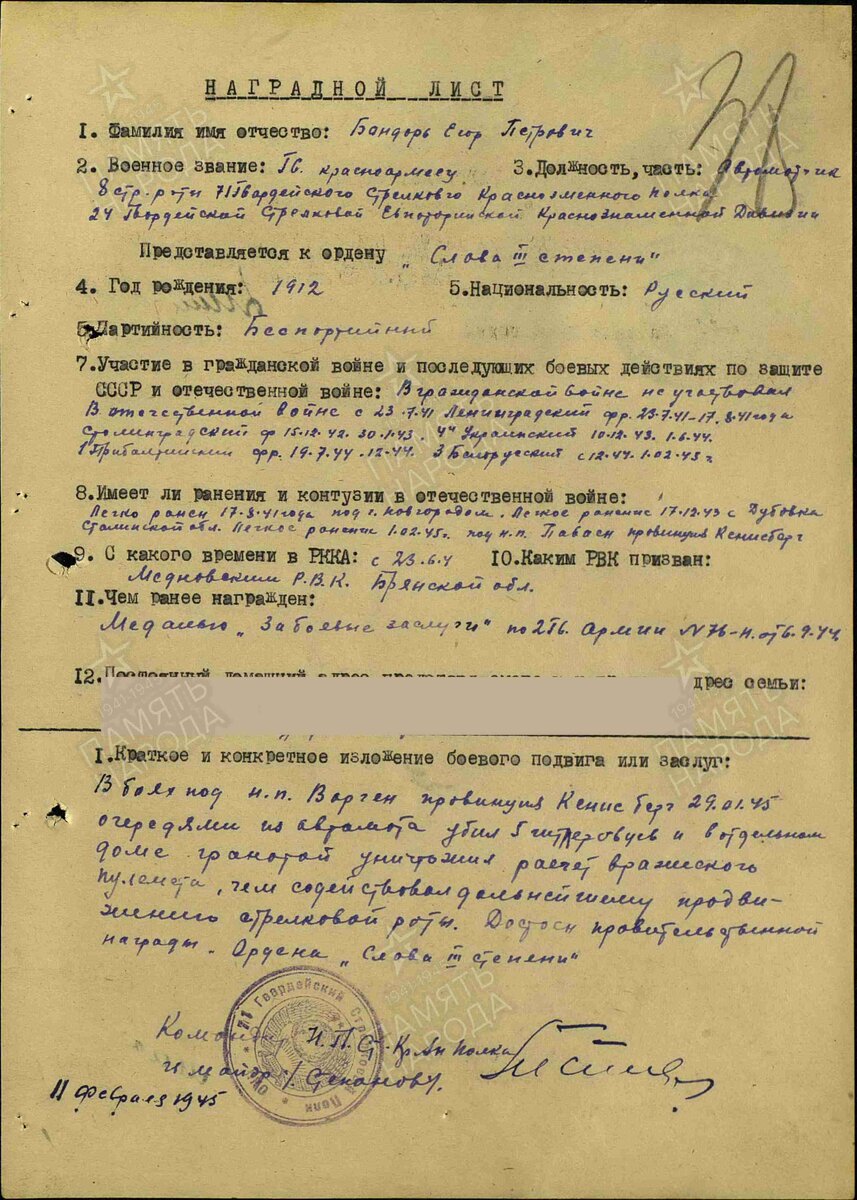 НАГРАДНОЙ ЛИСТ
1. Фамилия имя отчество: Бандорь Егор Петрович
2. Военное звание: Гв. красноармеец 3. Должность, часть: Автоматчик
8 стр. роты 71 Гвардейского Стрелкового Краснознаменного полка
24 Гвардейской Стрелковой Евпаторийской Краснознаменной Дивизии
Представляется к ордену „Слава III степени"
4. Год рождения: 1912 5. Национальность: Русский
6. Партийность: Беспартийный
7. Участие в гражданской войне и последующих боевых действиях по защите
СССР и отечественной войне: В гражданской войне не участвовал
В отечественной войне с 23.7.41 Ленинградский фр. 23.7.41-17.8.41 года
Сталинградский ф 15.12.42. 30.1.43. 4й Украинский 10.12.43. 1.6.44.
1 Прибалтийский фр. 19.7.44 .12.44. 3 Белорусский с 12.44. 1.02.45 г.
8. Имеет ли ранения и контузии в отечественной войне:
Легко ранен 17.8.41 года под г. Новгородом. Легкое ранение 17.12.43 с Дубовка
Сталинской обл. Легкое ранение 1.02.45 г. под н.п. провинция Кенисберг
9. С какого времени в РККА: с 23.6.4 10. Каким РВК призван:
Р.В.К. Брянской обл.
11. Чем ранее награжден:
Медалью „За боевые заслуги" по 2 Гв. Армии N 76-н. от 6.9.44.
12. Постоянный домашний адрес дрес семьи:
1. Краткое и конкретное изложение боевого подвига или заслуг:
В боях под н.п. Варген провинция Кенисберг 29.01.45
очередями из автомата убил 5 гитлеровцев и в отдельном
доме гранатой уничтожил расчет вражеского
пулемета, чем содействовал дальнейшему продви-
жению стрелковой роты. Достоин правительственной
награды. Ордена „Слава III степени"
Команд. Кр. Зн полка
майор /Степанов/.
11 Февраля 1945
71 Гвардейский Стрелковый Полк
ПАМЯТЬ НАРОДА
1941-1945